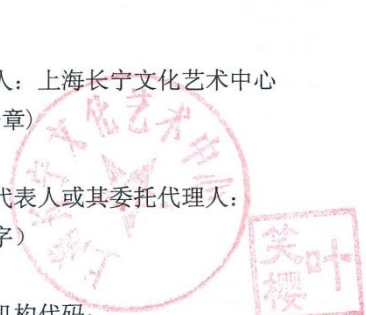 人：上海长宁文化艺术中心
章)
代表人或其委托代理人：
字）
机构代码：
宁文化艺术中心
叶
笑樱